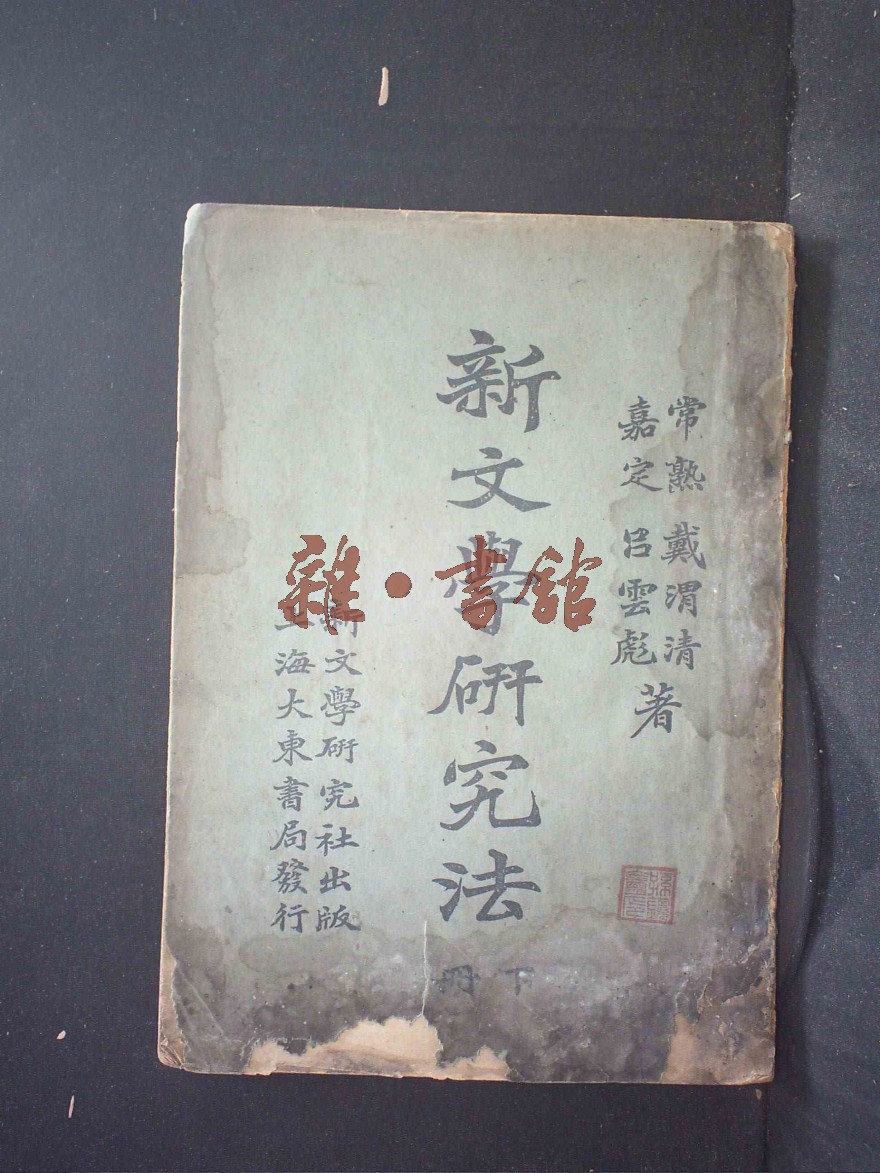 常熟 戴渭清
嘉定 呂雲彪
著
新文學研究法
下
冊
新文學研究社出版
上海大東書局發行
雜·書館